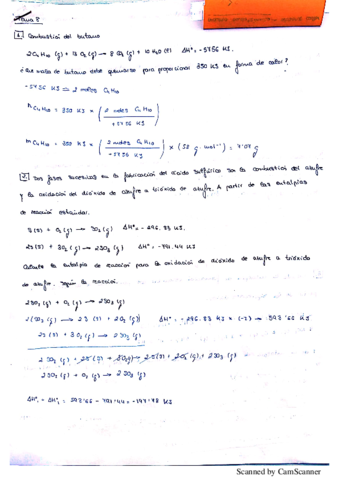 Tema 8
1. Combustión del butano
2C4H10 (g) + 13 O2 (g) → 8 CO2 (g) + 10 H2O (l) ΔHº = -5756 KJ.
¿Que masa de butano debe quemarse para proporcionar 350 KJ en forma de calor?
-5756 KJ = 2 moles C4H10
nC4H10 = 350 KJ × (2 moles C4H10 / -5756 KJ)
mC4H10 = 350 KJ × (2 moles C4H10 / -5756 KJ) × (58 g mol⁻¹) = 7'07 g
2. Dos fases sucesivas en la fabricación del ácido sulfúrico son la combustión del azufre
y la oxidación del dióxido de azufre a trióxido de azufre. A partir de las entalpias
de reacción estandar.
S (s) + O2 (g) → SO2 (g) ΔHº = -296.83 KJ.
2S (s) + 3O2 (g) → 2SO3 (g) ΔHº = -791.44 KJ
Calcule la entalpia de reacción para la oxidación de dióxido de azufre a trióxido
de azufre. Según la reacción.
2SO2 (g) + O2 (g) → 2SO3 (g)
2(SO2 (g) → 2S (s) + 2O2 (g)) ΔHº = -296.83 KJ × (-2) → 593'66 KJ
2S (s) + 3O2 (g) → 2SO3 (g)
2SO2 (g) + 2S (s) + 3O2 (g) → 2S (s) + 2O2 (g) + 2SO3 (g)
2SO2 (g) + O2 (g) → 2SO3 (g)
593'66 - 791'44 = -197'78 KJ
Scanned by CamScanner